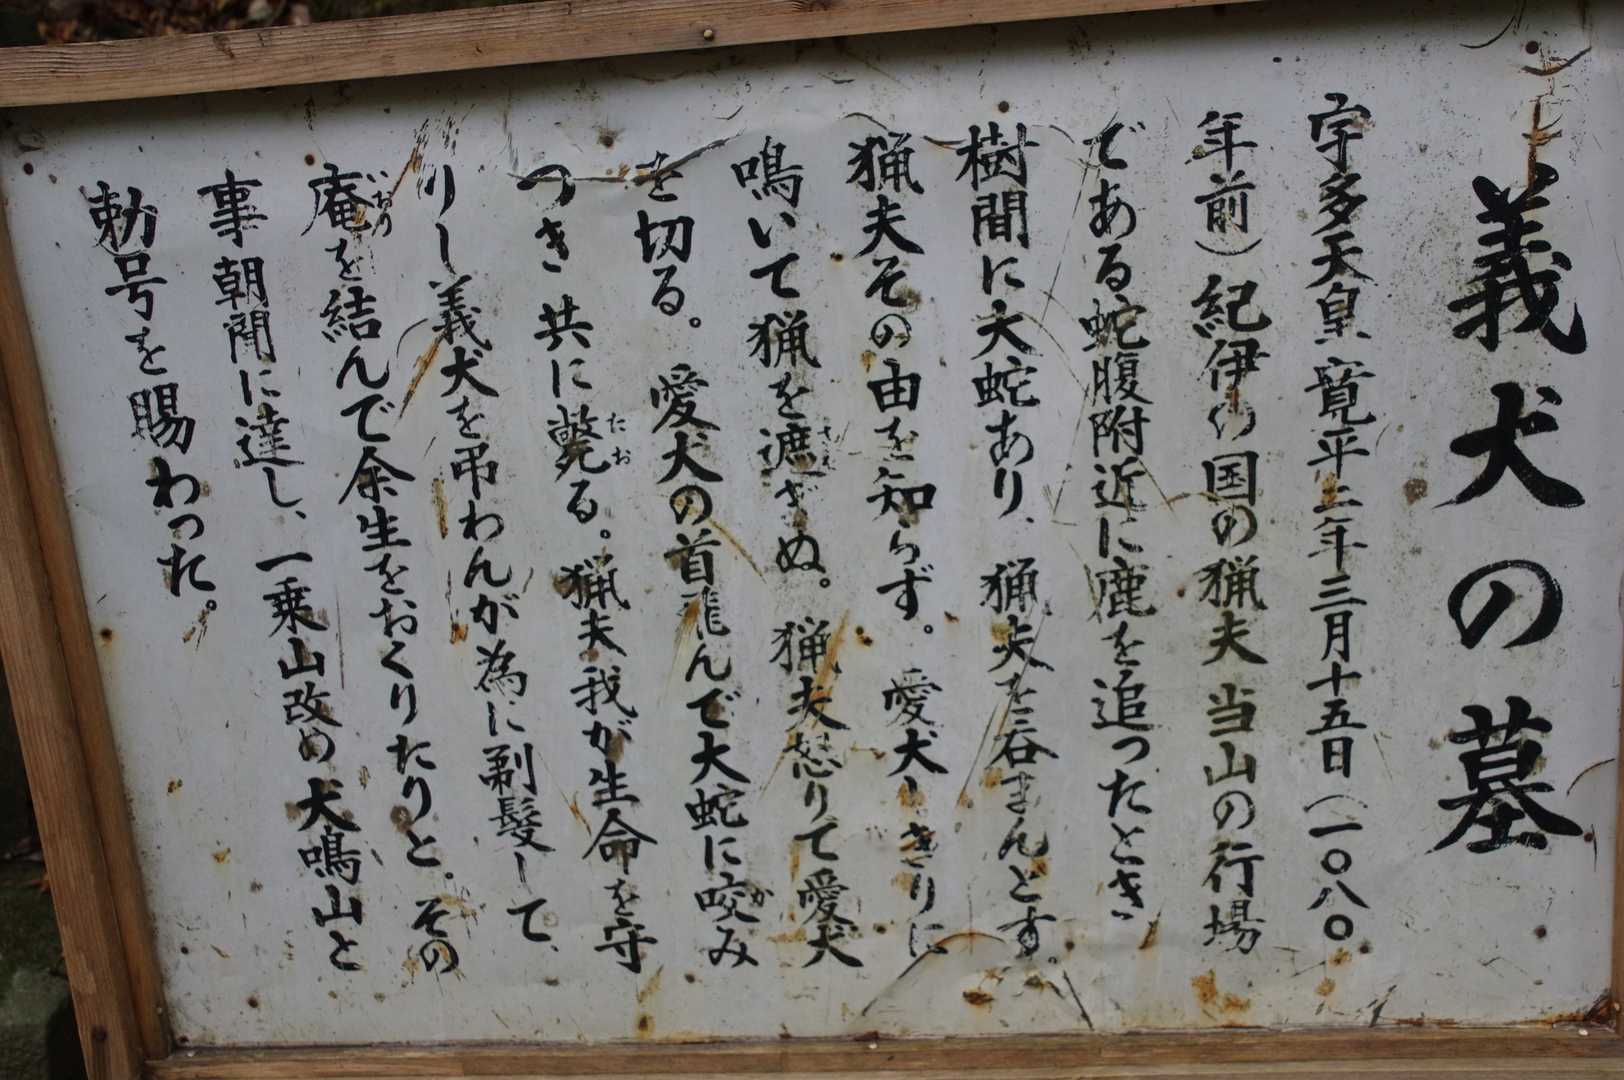 義犬の墓
宇多天皇寛平二年三月十五日（一〇八〇
年前）紀伊の国の猟夫当山の行場
である蛇腹附近に鹿を追ったとき
樹間に大蛇あり、猟夫を呑まんとす。
猟夫その由を知らず。愛犬しきりに
鳴いて猟を遮ぎぬ。猟夫怒りて愛犬
を切る。愛犬の首飛んで大蛇に咬み
つき共に斃る。猟夫我が生命を守
りし義犬を弔わんが為に剃髪して、
庵を結んで余生をおくりたりと。その
事朝聞に達し、一乗山改め犬鳴山と
勅号を賜わった。